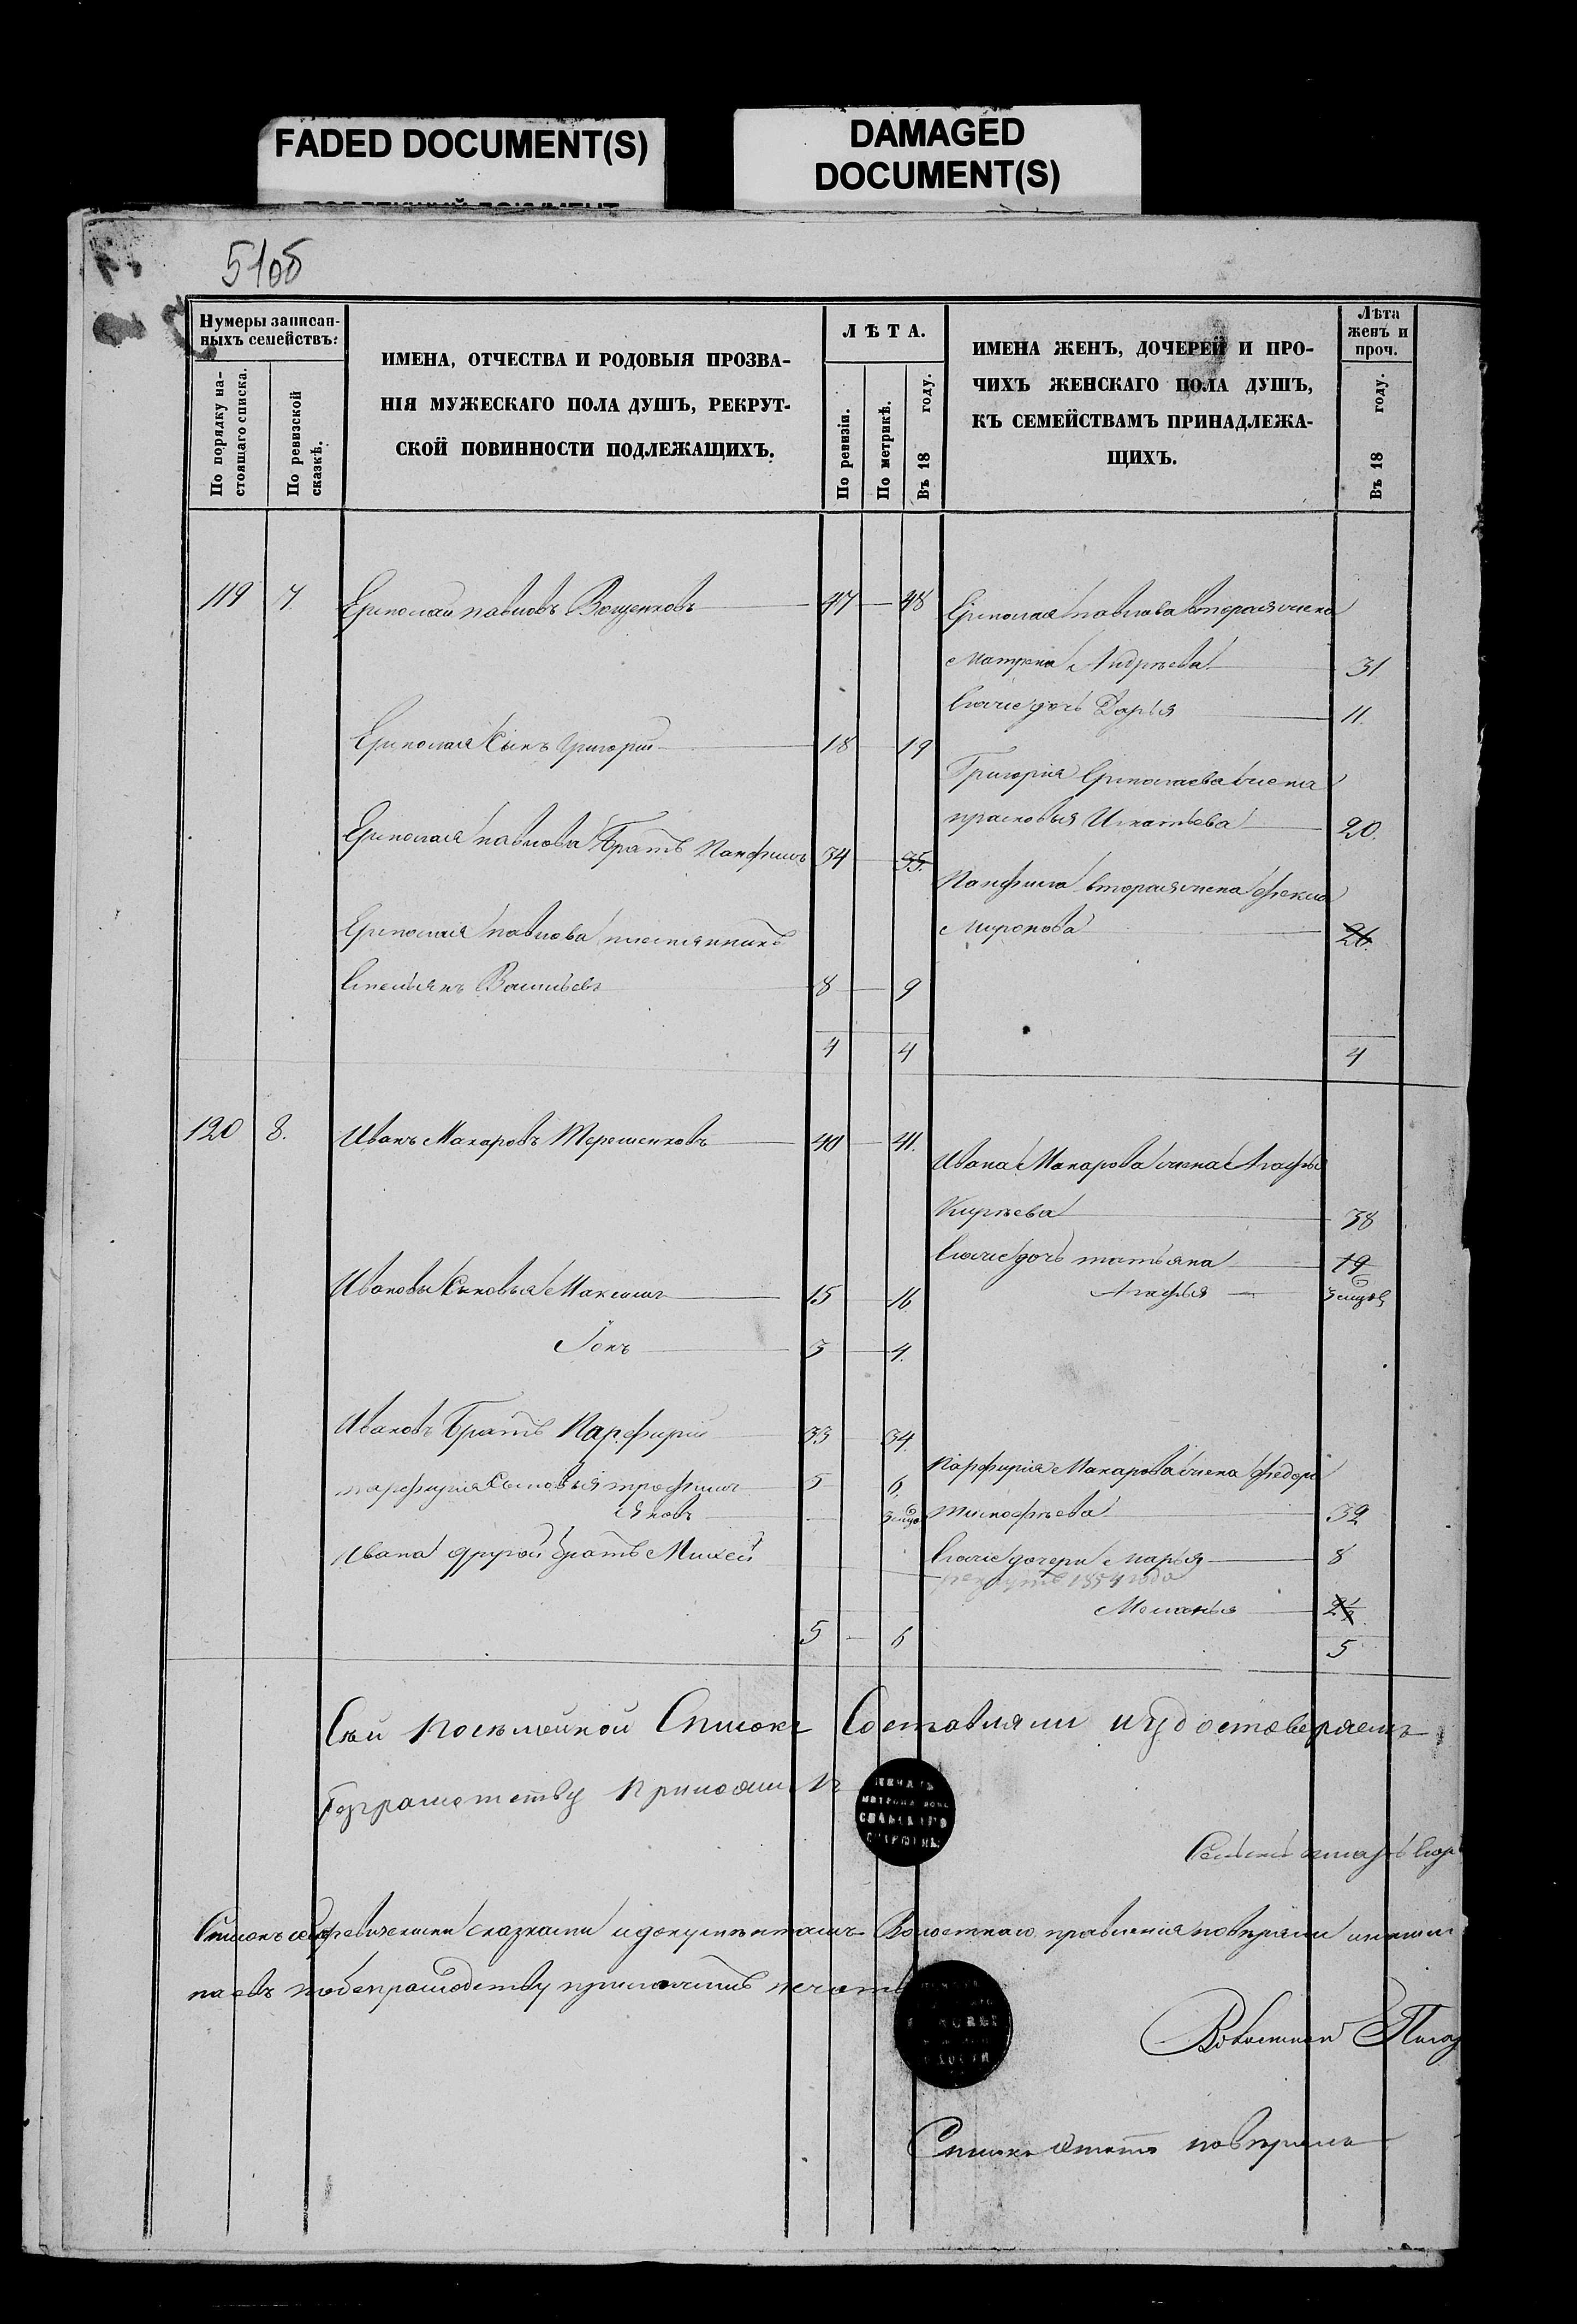 FADED DOCUMENT(S)
DAMAGED
DOCUMENT(S)
51об
Нумеры записан-
ныхъ семействъ:
По порядку на-
стоящаго списка.
По ревизской
сказкѣ.
ИМЕНА, ОТЧЕСТВА И РОДОВЫЯ ПРОЗВА-
НІЯ МУЖЕСКАГО ПОЛА ДУШЪ, РЕКРУТ-
СКОЙ ПОВИННОСТИ ПОДЛЕЖАЩИХЪ.
ЛѢТА.
По ревизіи.
По метрикѣ.
Въ 18 году.
ИМЕНА ЖЕНЪ, ДОЧЕРЕЙ И ПРО-
ЧИХЪ ЖЕНСКАГО ПОЛА ДУШЪ,
КЪ СЕМЕЙСТВАМЪ ПРИНАДЛЕЖА-
ЩИХЪ.
Лѣта
женъ и
проч.
Въ 18 году.
119 7. Ермолай Павловъ 47 48 Ермолая Павлова вторая жена
Матрена Андрѣева 31.
Ево же дочь Дарья 11.
Ермолая сынъ Григорій 18 19
Григорія Ермолаева жена
Прасковья Игнатьева 20.
Ермолая Павлова братъ Панфилъ 34 35.
Панфила вторая жена Фекла
Миронова 26.
Ермолая Павлова племянникъ
Емельянъ Васильевъ 8 9
4 4 4
120 8. Иванъ Макаровъ Терешенковъ 40 41.
Ивана Макарова жена Агафья
Кирѣева 38
Ево же дочь Татьяна 19
Агафья
Ивановы сыновья Максимъ 15 16
Іонъ 3 4.
Ивановъ братъ Парфирій 33 34.
Парфирія Макарова жена Федора
Парфирія сыновья Трофимъ 5 6.
Яковъ
Тимофѣева 32
Ивана другой братъ Михей
Ево же дочери Марья 8
рекрутъ 1854 года
Меланья 2½
5 6 5
Сей посѣмейной Списокъ Составляли и удостовѣряемъ
безграмотству приложилъ
Списокъ сей съ ревизскими сказками и документами Волостнаго правленія повѣряли
по безграмотству приложилъ печать
Волостной
Списокъ этотъ повѣрялъ